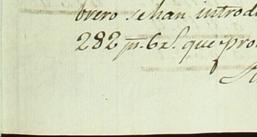 brero se han introd
282 ps. 6 rl. que pro